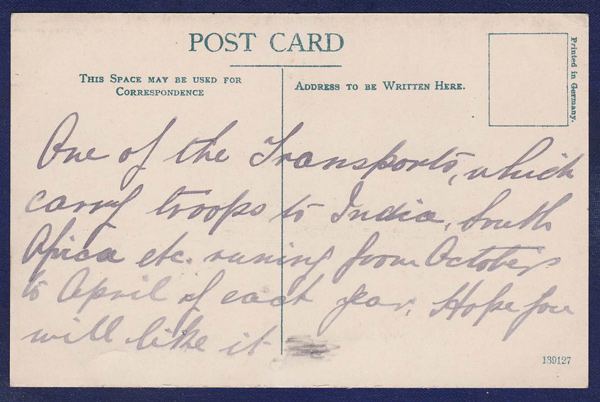 POST CARD
THIS SPACE MAY BE USED FOR
CORRESPONDENCE
ADDRESS TO BE WRITTEN HERE.
Printed in Germany.
One of the Transports, which
carry troops to India, South
Africa etc. runing from October
to April of each year. Hope you
will like it
139127